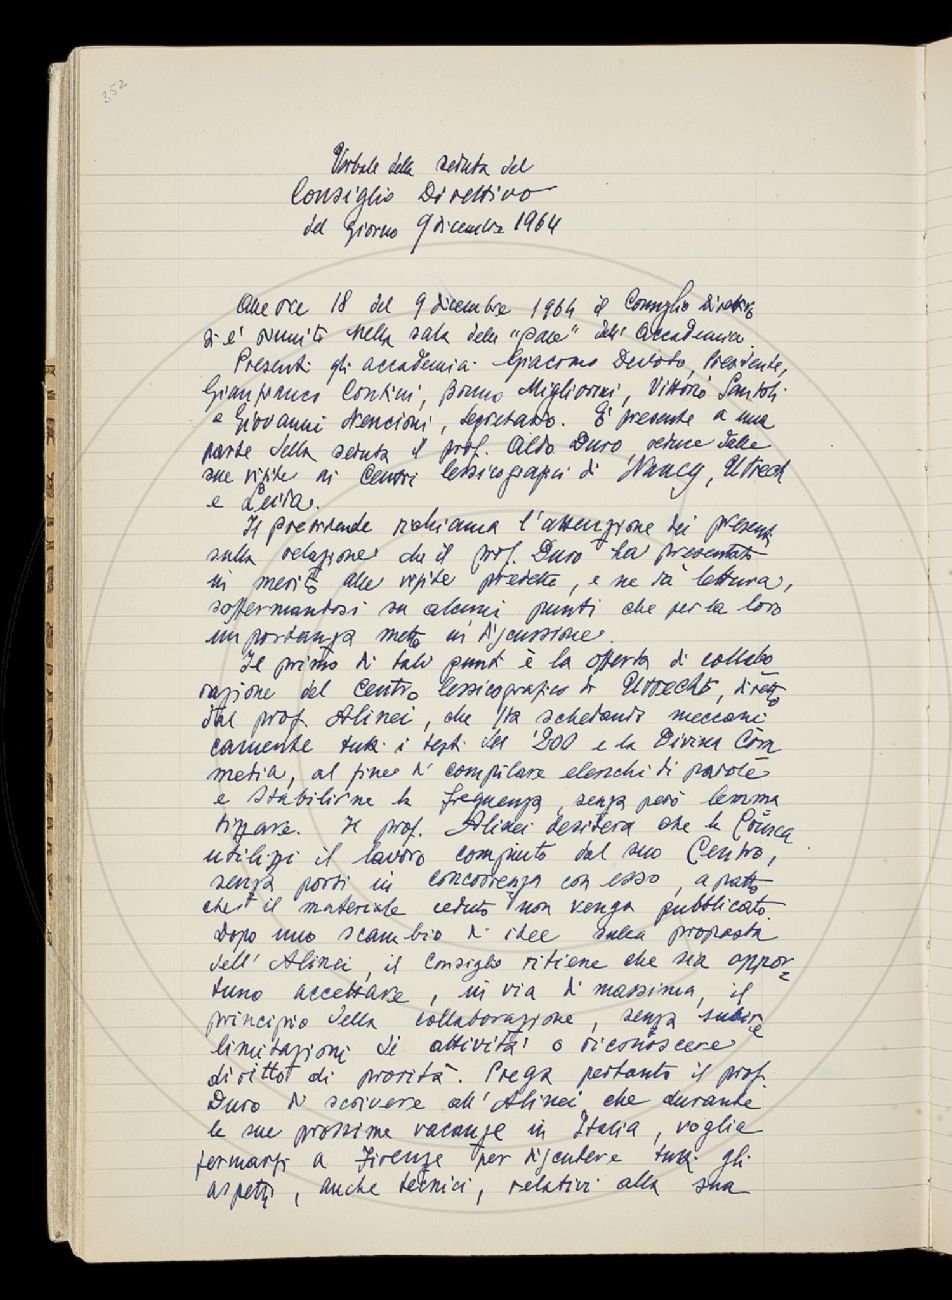 352
Verbale della seduta del
Consiglio Direttivo
del giorno 9 dicembre 1964
Alle ore 18 del 9 dicembre 1964 il Consiglio Direttivo
si è riunito nella sala delle "pale" dell'Accademia.
Presenti gli accademici Giacomo Devoto, Presidente,
Gianfranco Contini, Bruno Migliorini, Vittorio Santoli
e Giovanni Nencioni, Segretario. È presente a una
parte della seduta il prof. Aldo Duro reduce dalle
sue visite ai Centri lessicografici di Nancy, Utrech
e Leida.
Il presidente richiama l'attenzione dei presenti
sulla relazione che il prof. Duro ha presentato
in merito alle visite predette, e ne dà lettura,
soffermandosi su alcuni punti che per la loro
importanza mette in discussione.
Il primo di tali punti è la offerta di collabo
razione del Centro lessicografico di Utrecht, diretto
dal prof. Alinei, che sta schedando meccani
camente tutti i testi del '200 e la Divina Com
media, al fine di compilare elenchi di parole
e stabilirne la frequenza, senza però lemma
tizzare. Il prof. Alinei desidera che la Crusca
utilizzi il lavoro compiuto dal suo Centro,
senza porsi in concorrenza con esso, a patto
che il materiale ceduto non venga pubblicato.
Dopo uno scambio di idee sulla proposta
dell'Alinei, il Consiglio ritiene che sia oppor=
tuno accettare, in via di massima, il
principio della collaborazione, senza subire
limitazioni di attività o riconoscere
diritto di priorità. Prega pertanto il prof.
Duro di scrivere all'Alinei che durante
le sue prossime vacanze in Italia, voglia
fermarsi a Firenze per discutere tutti gli
aspetti, anche tecnici, relativi alla sua